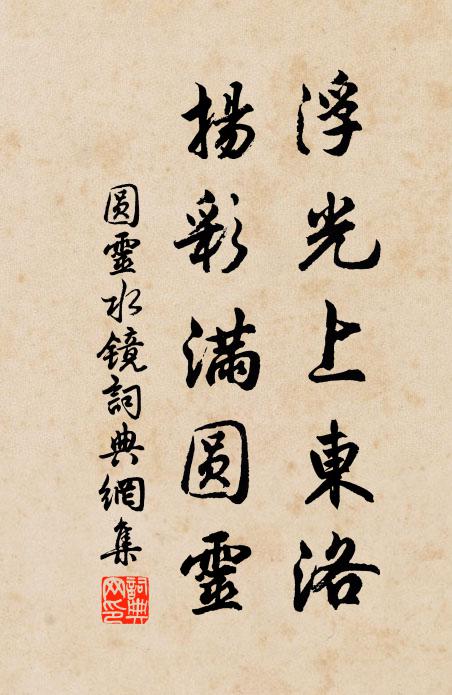 浮光上東洛
揚彩滿圓靈
圓靈水鏡詞典網集
詞典
网印